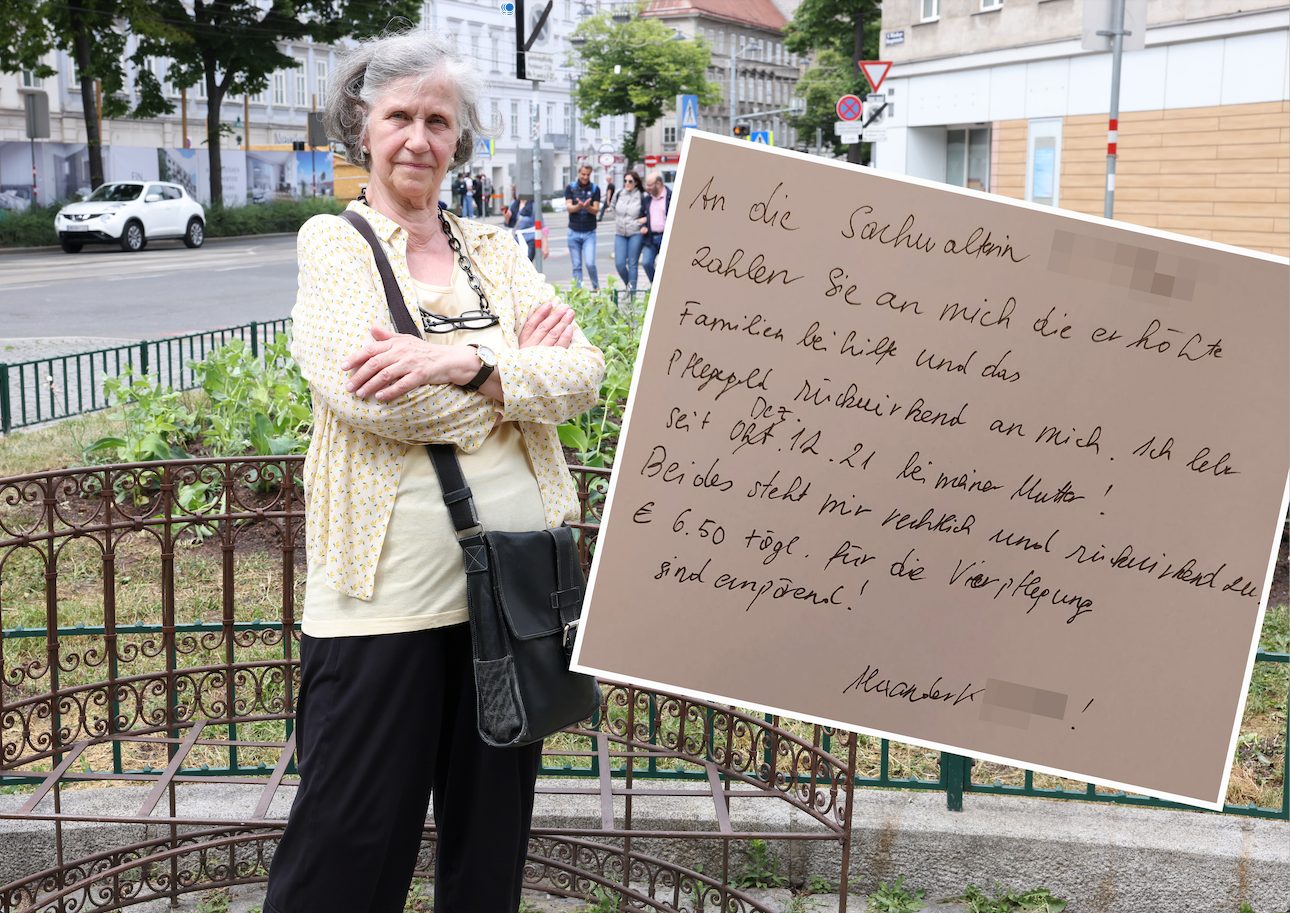 An die Sachwalterin
zahlen Sie an mich die erhöhte
Familienbeihilfe und das
Pflegegeld rückwirkend an mich. Ich lebe
Dez.
seit Okt. 12.21 bei meiner Mutter!
Beides steht mir rechtlich und rückwirkend zu.
€ 6.50 tägl. für die Vierpflegung
sind empörend!
Alexander K !